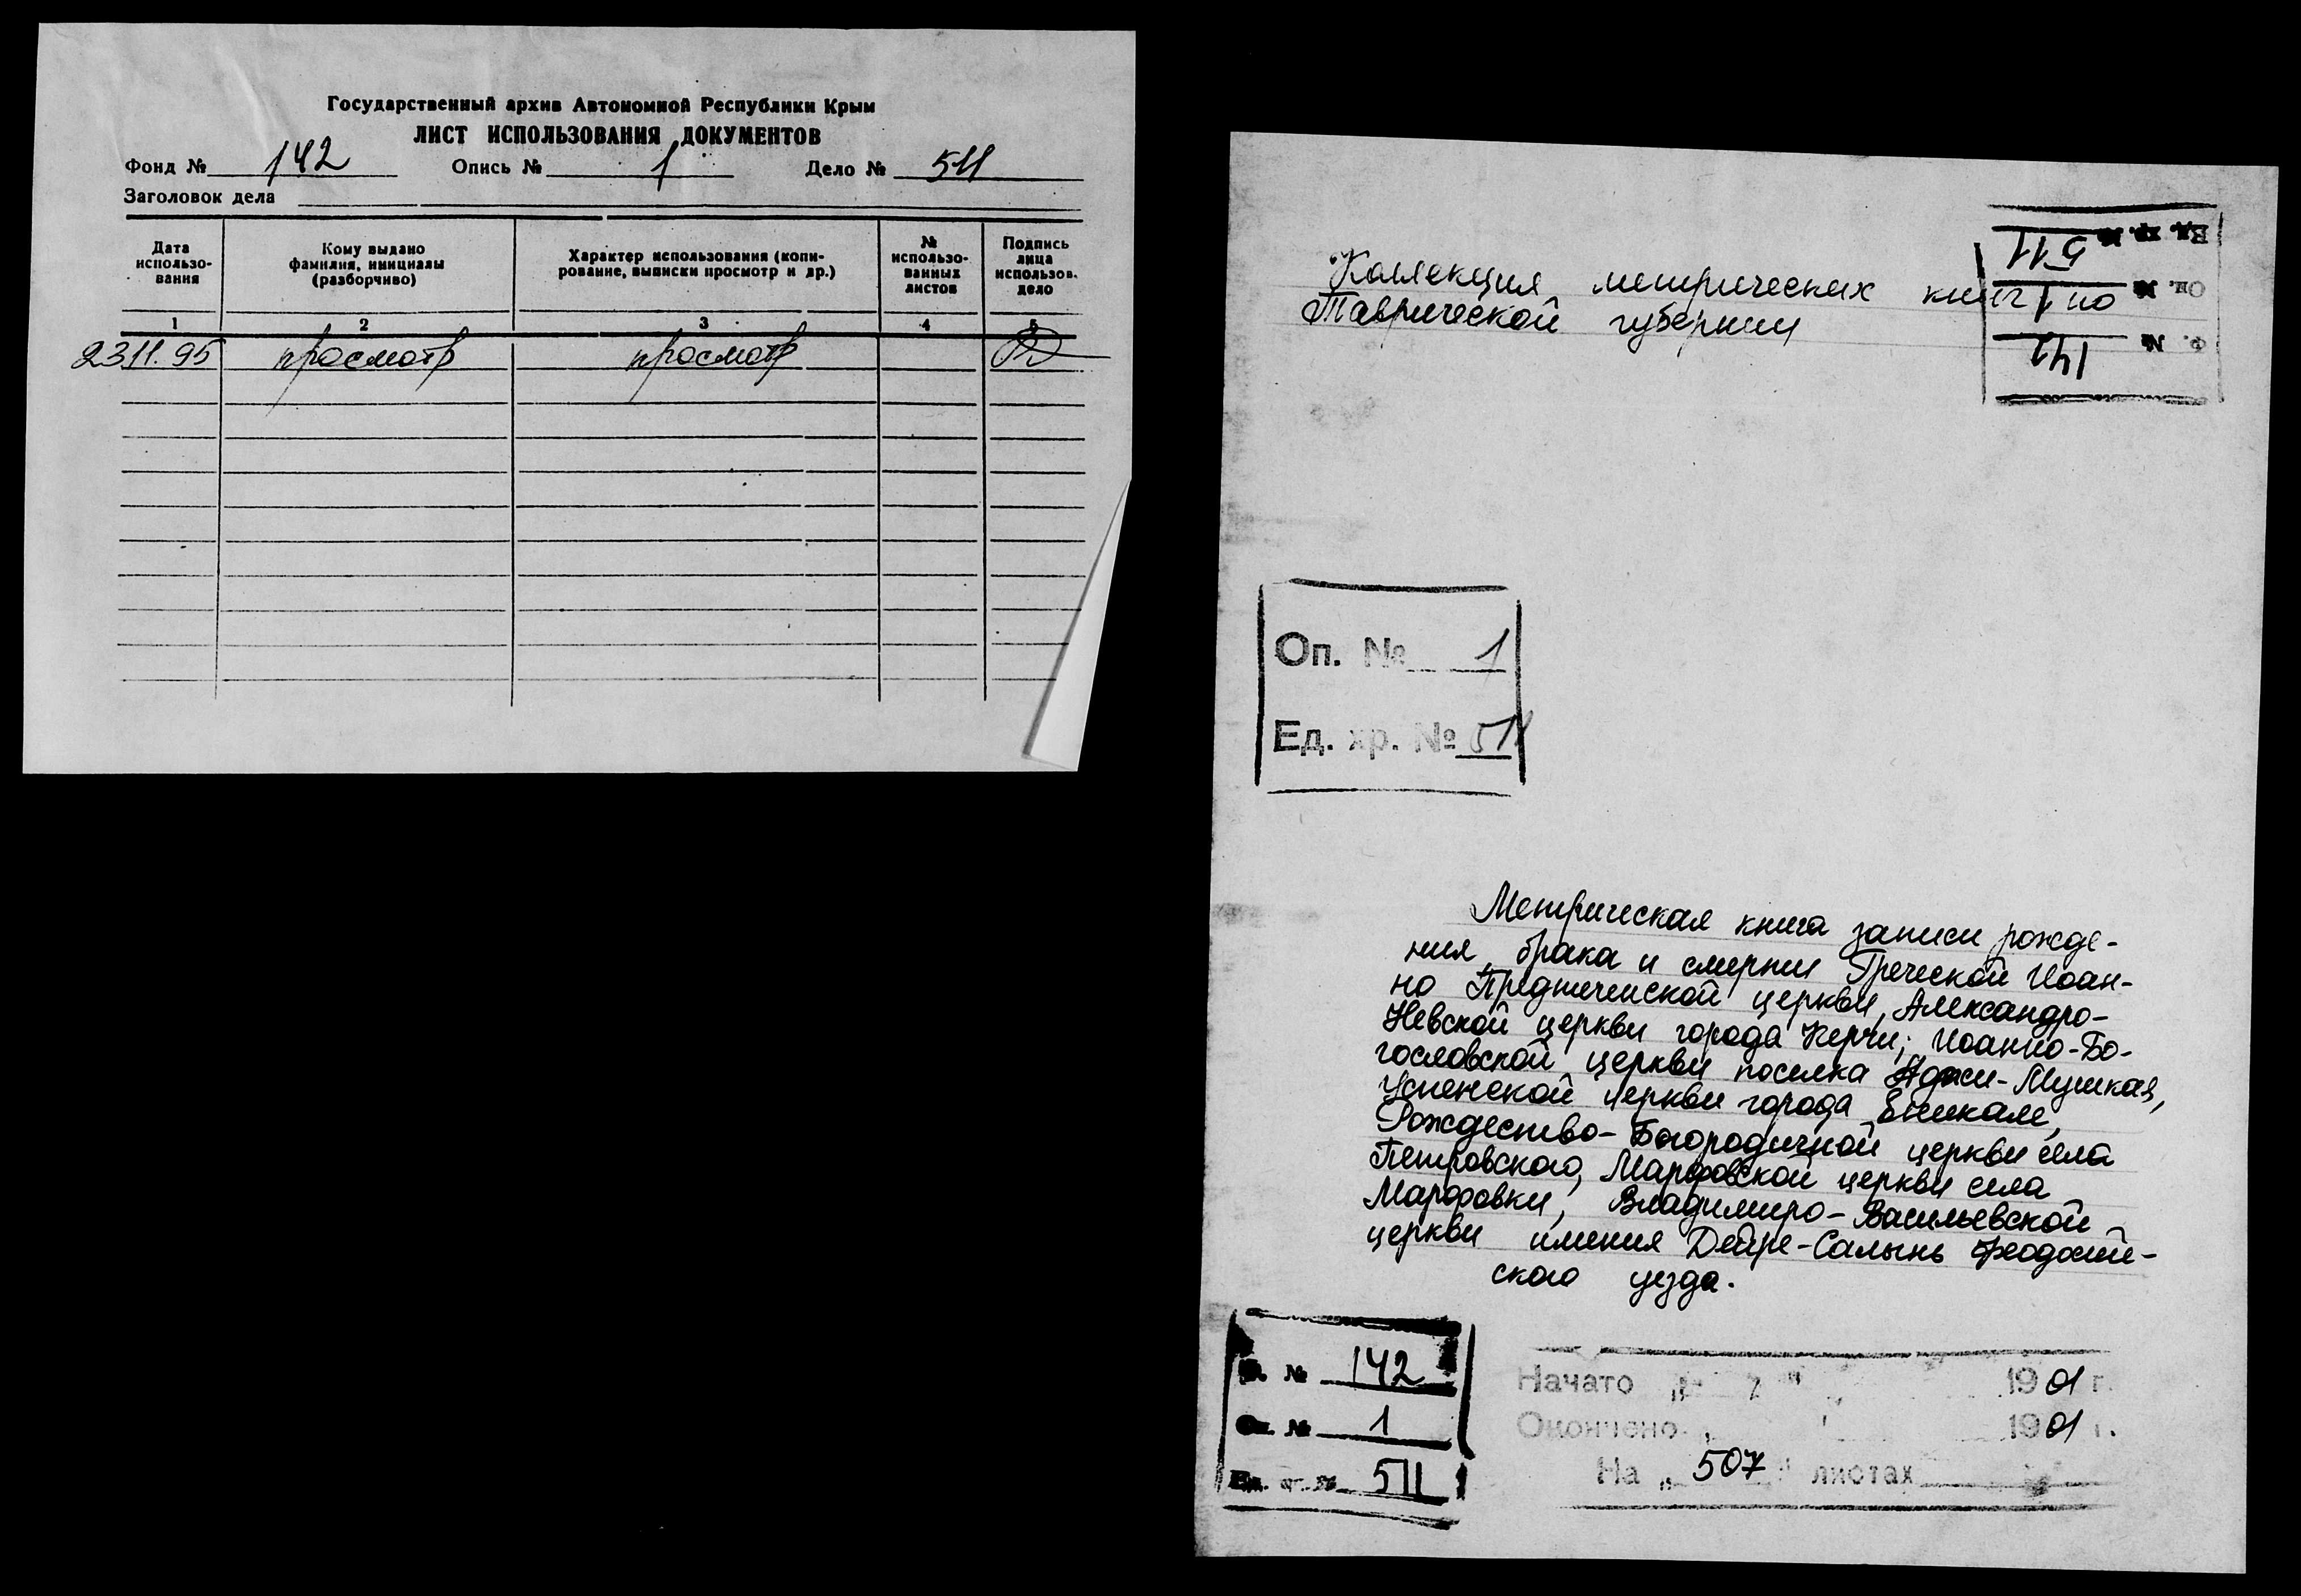 Государственный архив Автономной Республики Крым
ЛИСТ ИСПОЛЬЗОВАНИЯ ДОКУМЕНТОВ
Фонд № 142 Опись № 1 Дело № 511
Заголовок дела
Дата использо-вания
Кому выдано фамилия, инициалы (разборчиво)
Характер использования (копи-рование, выписки просмотр и др.)
№ использо-ванных листов
Подпись лица использов. дело
1 2 3 4 5
23 11. 95 просмотр просмотр
Коллекция метрических книг по
Таврической губернии
Ед. хр. № 511
Оп. № 1
Ф. № 142
Оп. № 1
Ед. хр. № 511
Метрическая книга записи рожде-
ния, брака и смерти Греческой Иоан-
но Предтеченской церкви, Александро-
Невской церкви города Керчи; Иоанно-Бо-
гословской церкви поселка Аджи-Мушкая,
Успенской церкви города Еникале,
Рождество-Богородичной церкви села
Петровского, Марфовской церкви села
Марфовки, Владимиро-Васильевской
церкви имения Дейре-Салынь Феодосий-
ского уезда.
Ф. № 142
Оп. № 1
Ед. хр. № 511
Начато 1901 г.
Окончено 1901 г.
На „507" листах